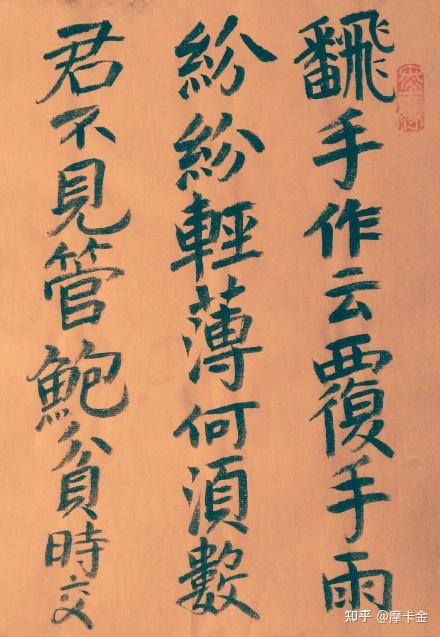 飜手作云覆手雨
紛紛輕薄何湏數
君不見管鮑貧時交
知乎 @摩卡金